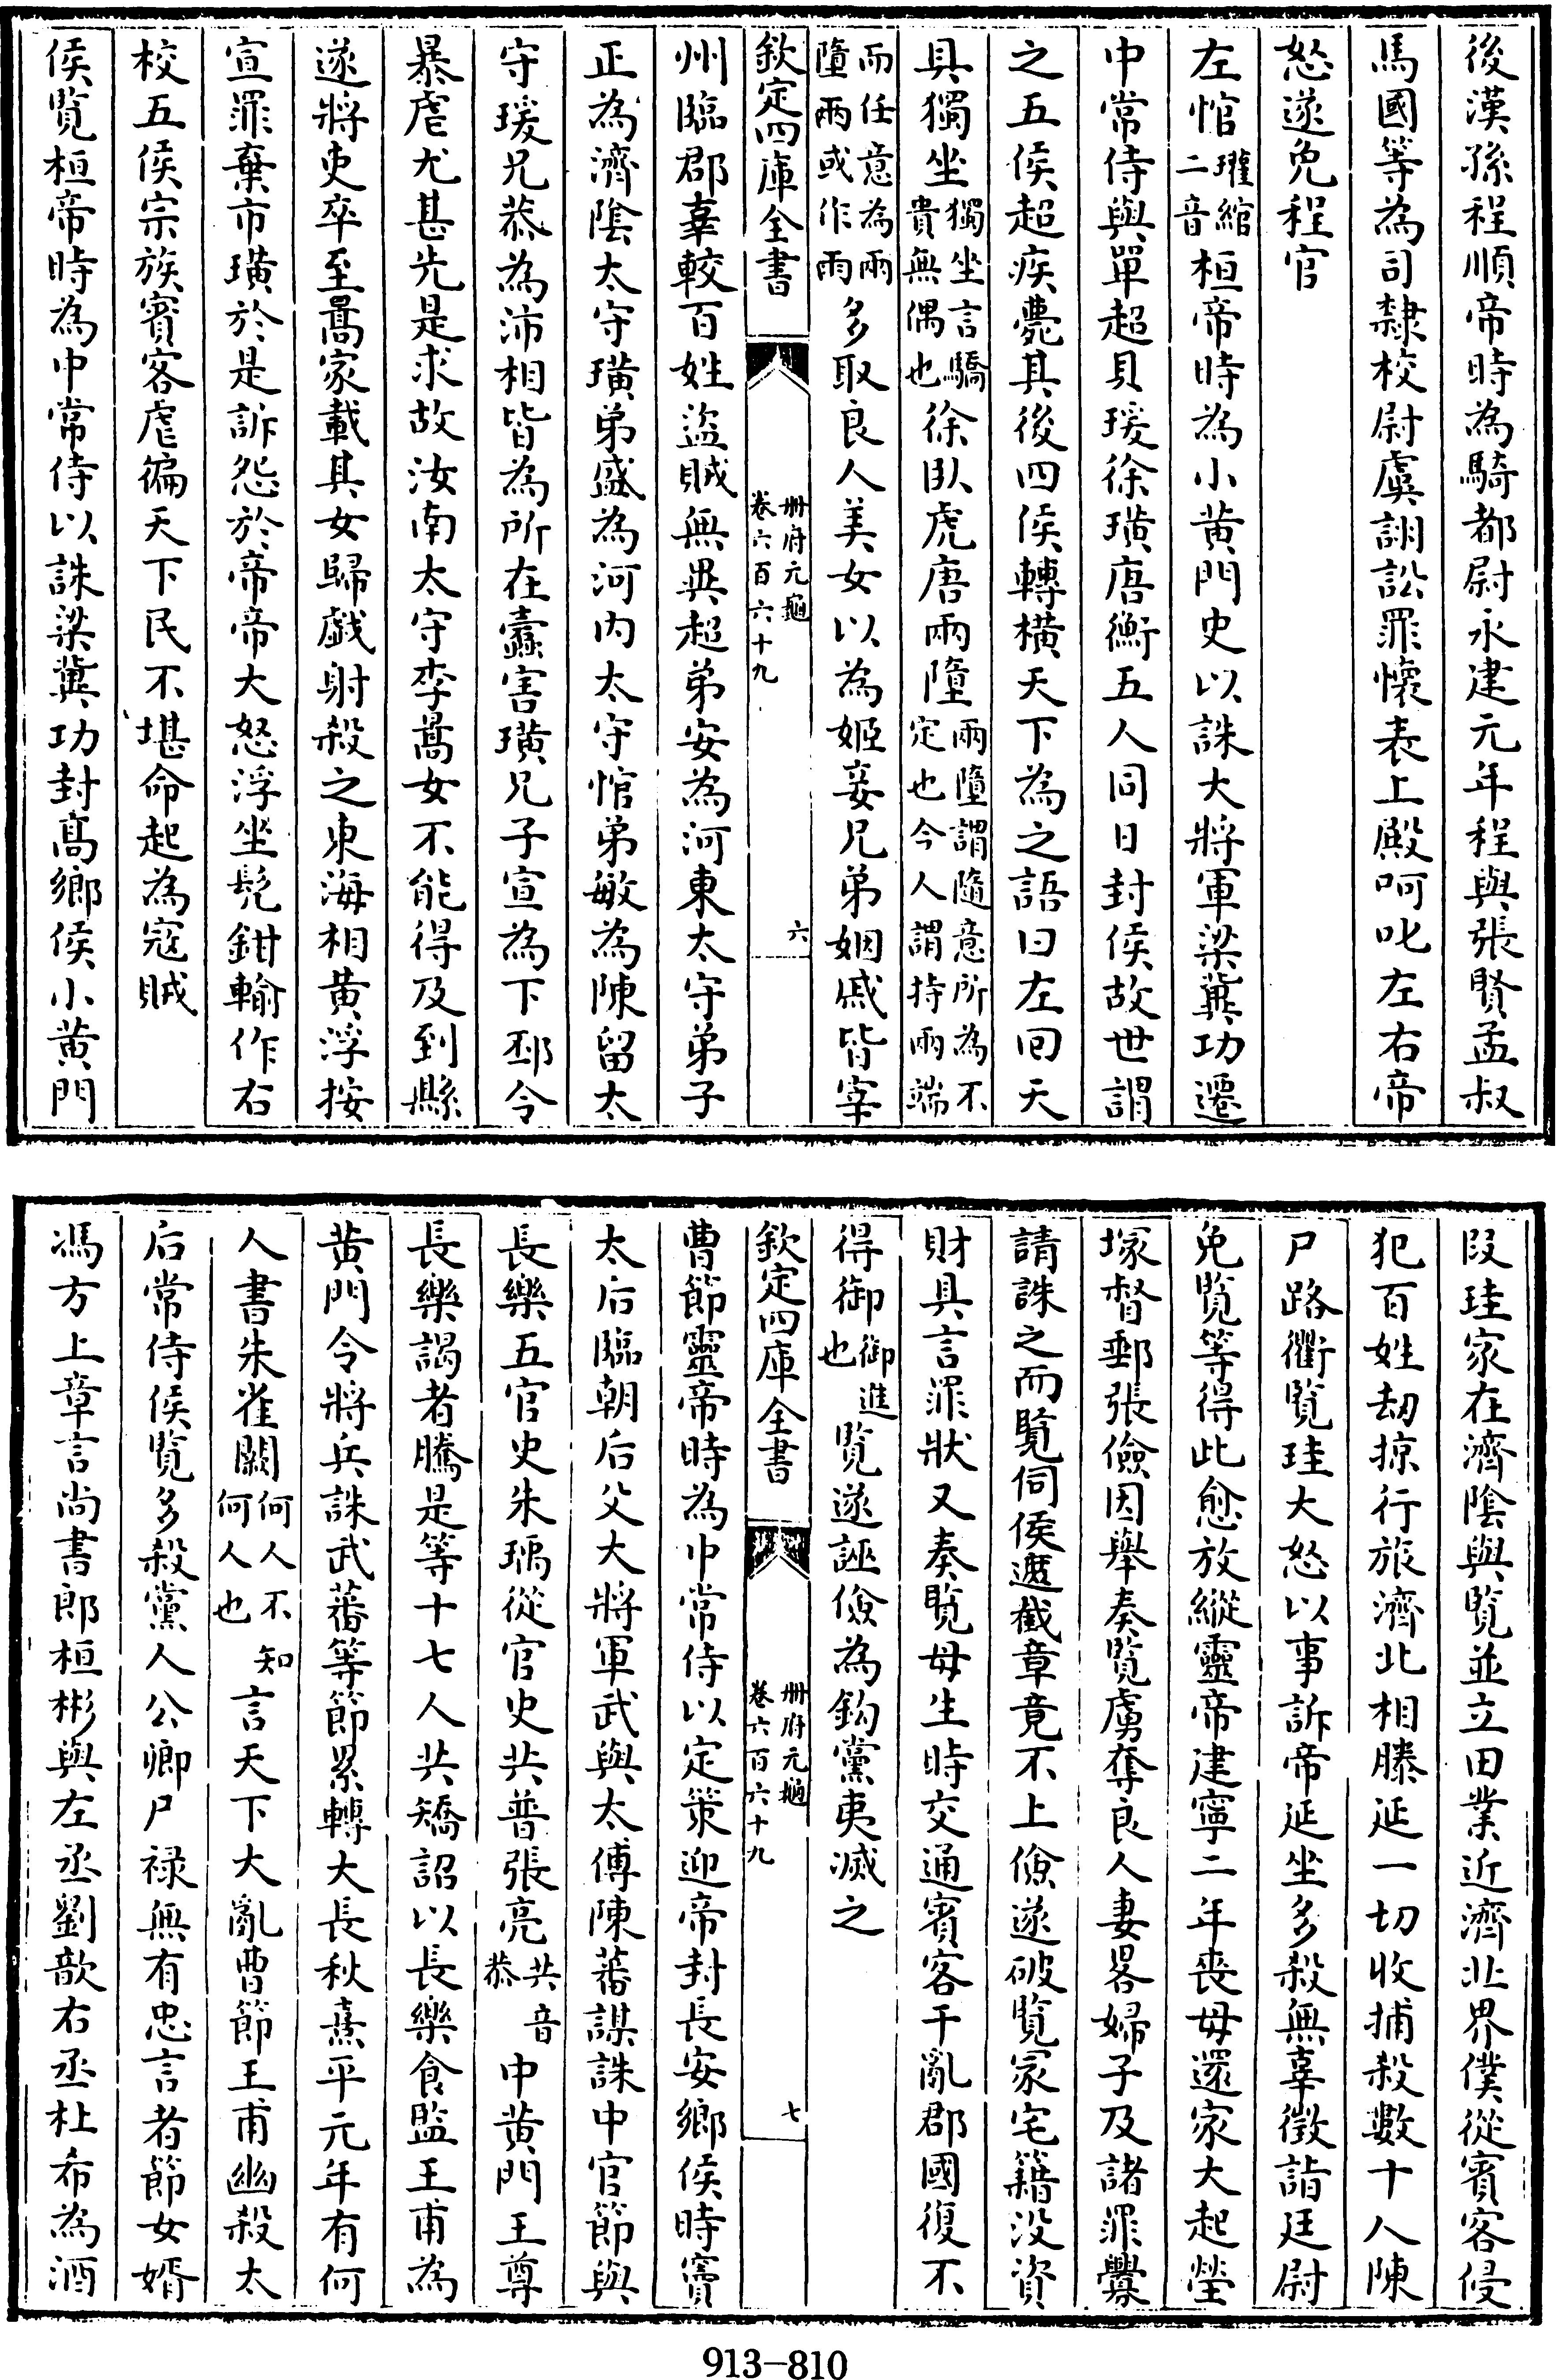 後漢孫程順帝時為騎都尉永建元年程與張賢孟叔
馬國等為司隸校尉虞詡訟罪懷表上殿呵叱左右帝
怒遂免程官
左悺瓘綰二音桓帝時為小黄門史以誅大將軍梁冀功遷
中常侍與單超具瑗徐璜唐衡五人同日封侯故世謂
之五侯超疾薨其後四侯轉橫天下為之語曰左回天
具獨坐獨坐言驕貴無偶也徐臥虎唐兩墮兩墮謂隨意所為不定也今人謂持兩端
而任意為兩墮兩或作雨多取良人美女以為姬妾兄弟姻戚皆宰
欽定四庫全書 冊府元龜卷六百六十九 六
州臨郡辜較百姓盜賊無異超弟安為河東太守弟子
正為濟陰太守璜弟盛為河内太守悺弟敏為陳留太
守瑗兄恭為沛相皆為所在蠹害璜兄子宣為下邳令
暴虐尤甚先是求故汝南太守李暠女不能得及到縣
遂將吏卒至暠家載其女歸戯射殺之東海相黄浮按
宣罪棄市璜於是訴怨於帝帝大怒浮坐髠鉗輸作右
校五侯宗族賓客虐徧天下民不堪命起為寇賊
侯覽桓帝時為中常侍以誅梁冀功封髙鄉侯小黄門
段珪家在濟陰與覽並立田業近濟北界僕從賓客侵
犯百姓刼掠行旅濟北相滕延一切收捕殺數十人陳
尸路衢覽珪大怒以事訴帝延坐多殺無辜徵詣廷尉
免覽等得此愈放縱靈帝建寧二年喪母還家大起塋
塚督郵張儉因舉奏覽虜奪良人妻畧婦子及諸罪釁
請誅之而覽伺侯遮截章竟不上儉遂破覽冢宅籍没資
財具言罪狀又奏覽母生時交通賓客干亂郡國復不
得御御進也覽遂誣儉為鈎黨夷滅之
欽定四庫全書 冊府元龜卷六百六十九 七
曹節靈帝時為中常侍以定策迎帝封長安鄉侯時竇
太后臨朝后父大將軍武與太傅陳蕃謀誅中官節與
長樂五官史朱瑀從官史共普張亮共音恭中黄門王尊
長樂謁者騰是等十七人共矯詔以長樂食監王甫為
黄門令將兵誅武蕃等節累轉大長秋熹平元年有何
人書朱雀闕何人不知何人也言天下大亂曹節王甫幽殺太
后常侍侯覽多殺黨人公卿尸禄無有忠言者節女婿
馮方上章言尚書郎桓彬與左丞劉歆右丞杜希為酒
913-810